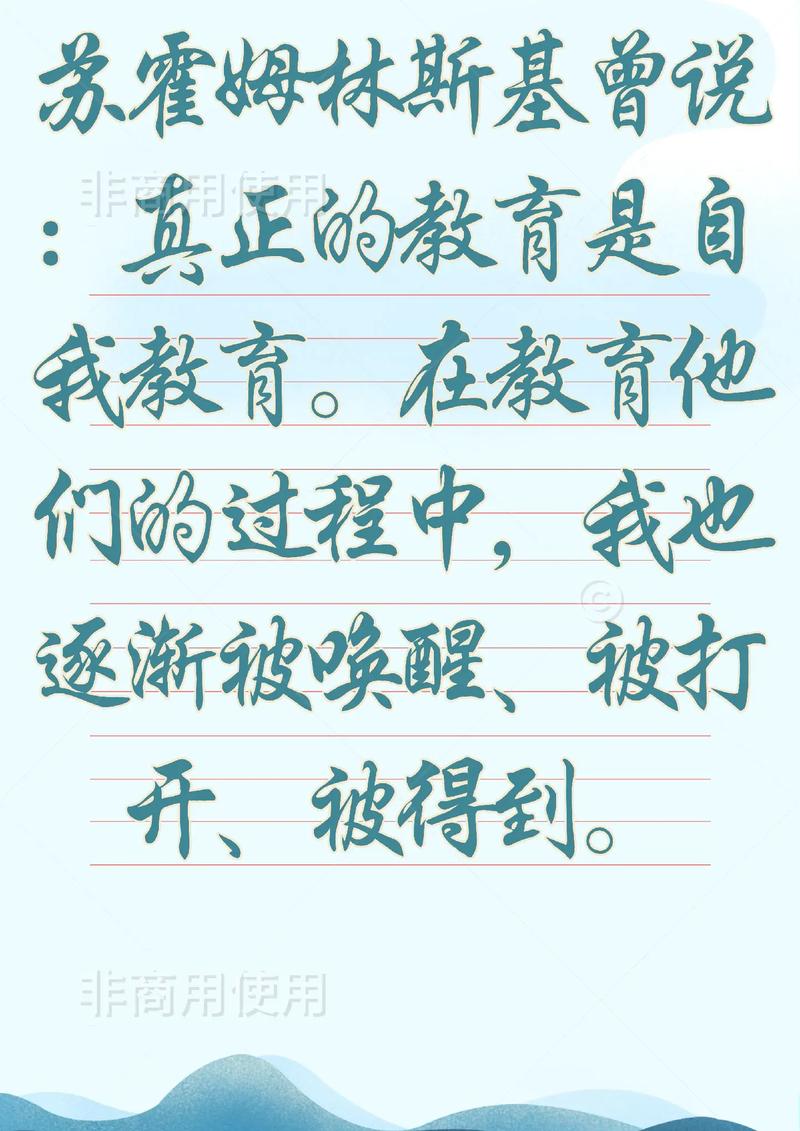 苏霍姆林斯基曾说
非商用使用
：真正的教育是自
我教育。在教育他
们的过程中，我也
©
逐渐被唤醒、被打
开、被得到。
非商用使用